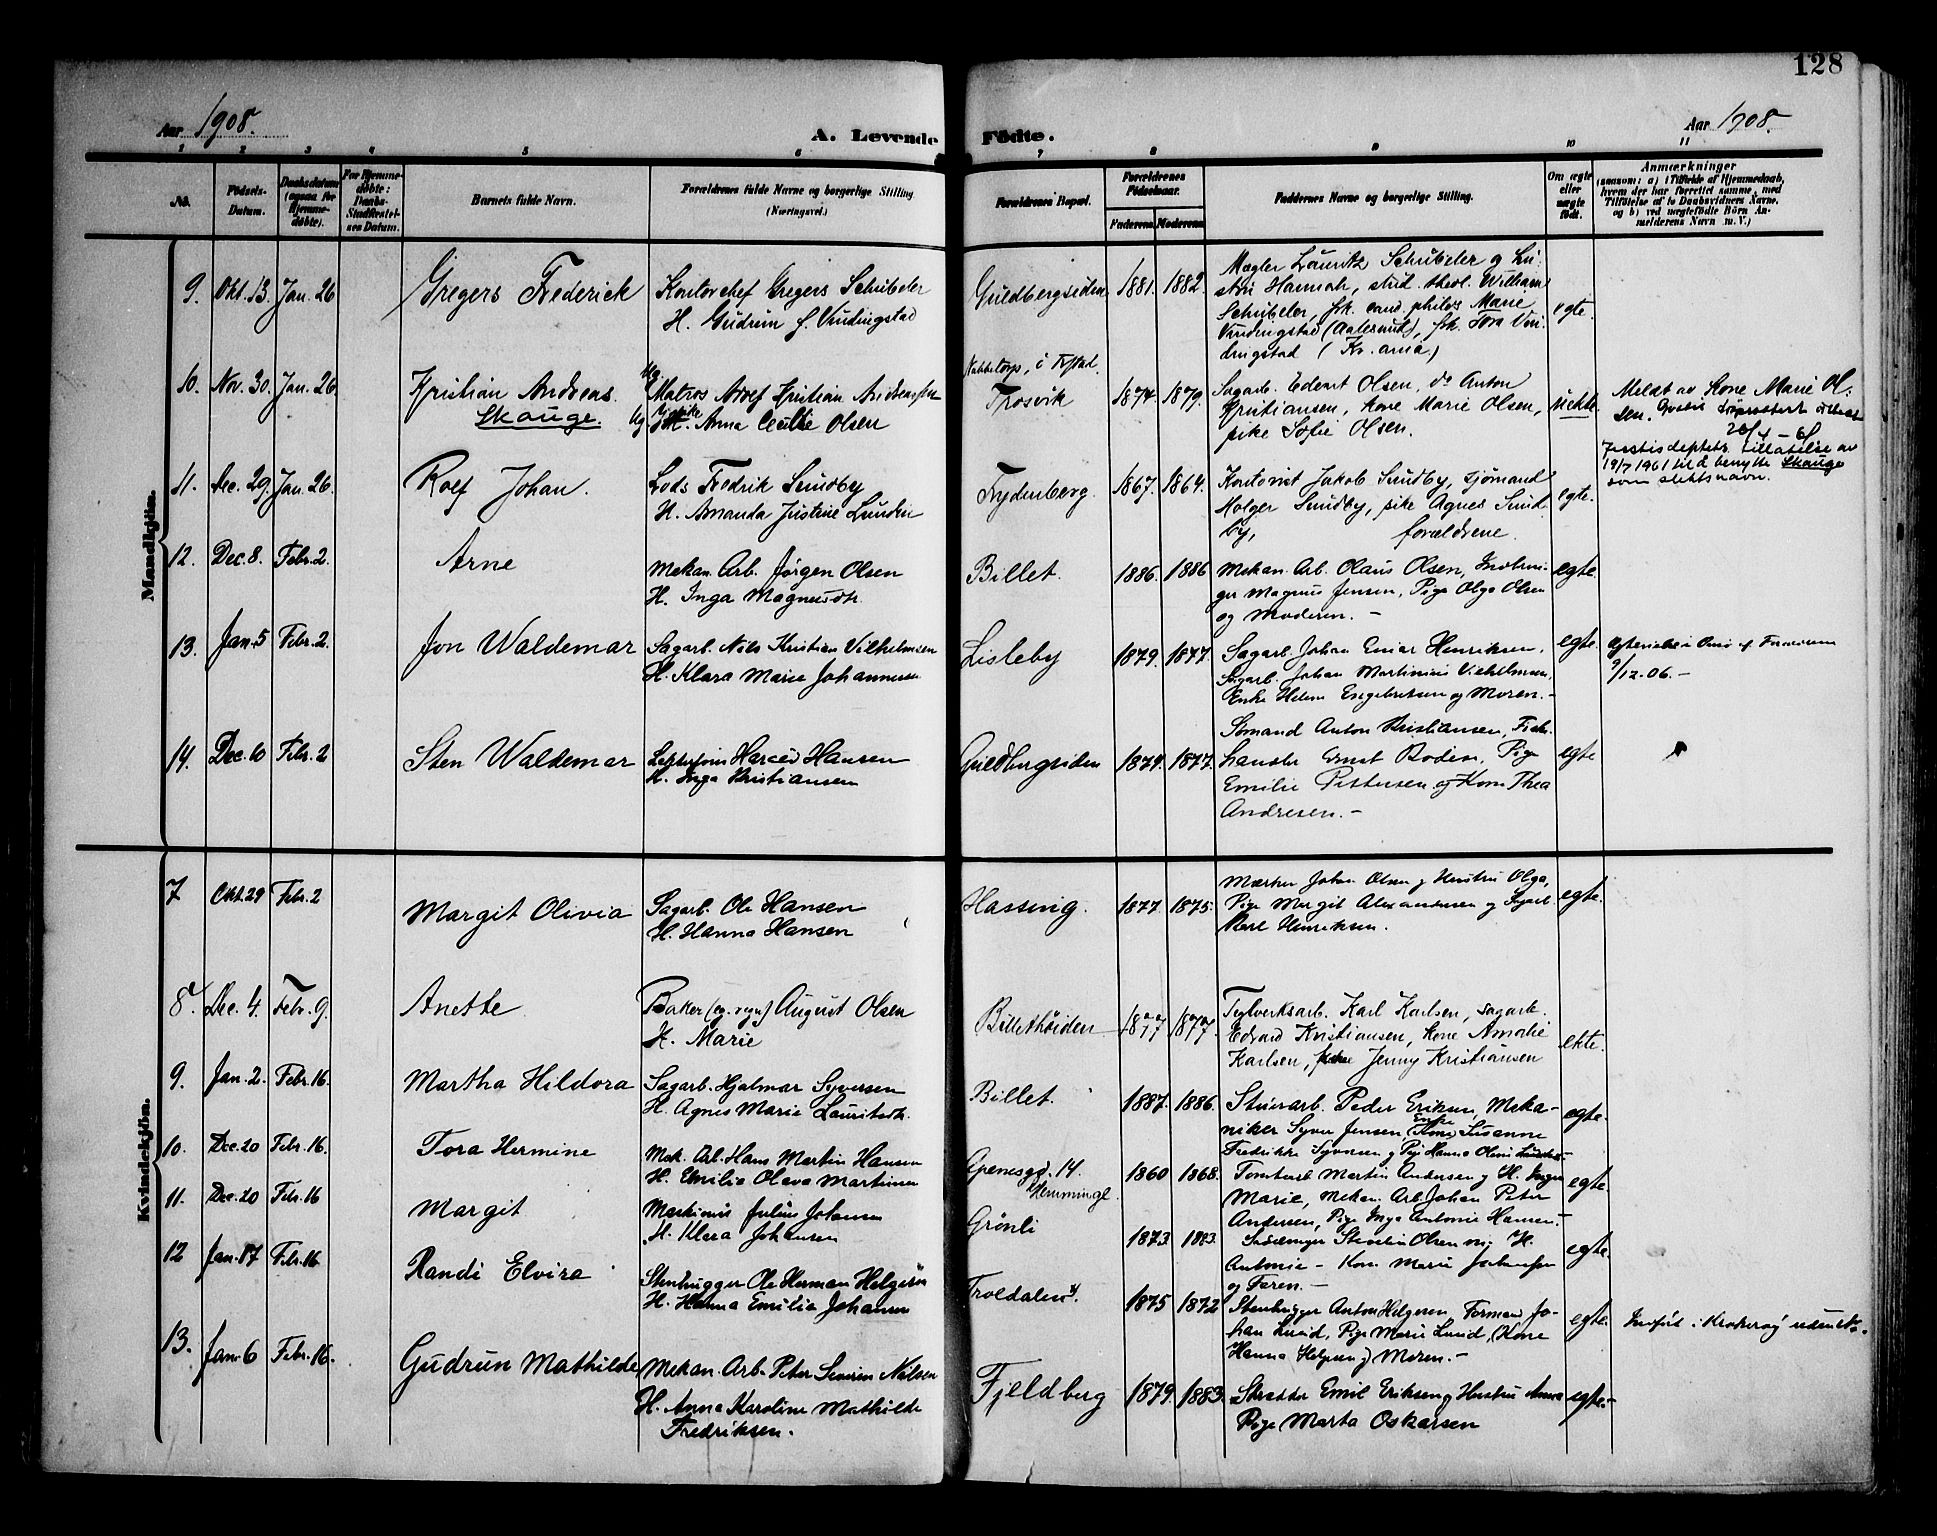 128
Aar 1908.
A. Levende Födte.
Aar 1908.
1 2 3 4 5 6 7 8 9 10 11
No.
Födsels-Datum.
Daabsdatum (ogsaa for Hjemmedöbte).
For Hjemmedöbte: Daabs-Stadfæstelses Datum.
Barnets fulde Navn.
Forældrenes fulde Navne og borgerlige Stilling
(Næringsvei.)
Forældrenes Bopæl.
Forældrenes Födselsaar.
Faderens Moderens
Faddernes Navne og borgerlige Stilling.
Om ægte eller uægte födt.
Anmærkninger
(saasom: a) i Tilfælde af Hjemmedaab,
hvem der har forrettet samme, med
Tilföielse af to Daabsvidners Navne,
og b) ved uægtefödte Börn Anmelderens Navn m. V.)
Mandkjön.
9. Okt. 13. Jan. 26 Gregers Frederick
Kontorchef Gregers Schübeler
H. Gudrun f. Vindingstad
Guldbergsiden 1881. 1882
Mægler Lauritz Schübeler og Hustru Hannah, stud. theol. William
Schübeler, frk. cand. philos Marie
Vindingstad (Aalesund), frk. Tora Vindingstad (Kr.ania)
egte.
10. Nov. 30. Jan. 26. Kristian Andreas.
Skauge.
Ug. Matros Adolf Kristian Andreassen
Ug. pike Anna Cecilie Olsen
i Tystad.
Trosvik 1874. 1879.
Sagarb. Edvart Olsen, do Anton
Kristiansen, kone Marie Olsen,
pike Sofie Olsen.
uekte.
Meldt av Kone Marie Olsen.
Justisdeptets tillatelse av
19/7 1961 til å benytte Skauge
som slektsnavn.
11. Dec. 29. Jan. 26. Rolf Johan.
Lods Fredrik Sundby
H. Amanda Justine Lunden
Frydenberg. 1867. 1864.
Kontorist Jakob Sundby, sjømand
Holger Sundby, pike Agnes Sundby, forældrene.
egte.
12. Dec. 8. Febr. 2. Arne
Mekan. Arb. Jørgen Olsen
H. Inga Magnusdtr.
Billet. 1886. 1886
Mekan. Arb. Olaus Olsen,
Magnus Jensen, Pige Olga Olsen
og Moderen. –
egte.
13. Jan. 5 Febr. 2. Jon Waldemar
Sagarb. Nils Kristian Vilhelmsen
H. Klara Marie Johannessen
Lisleby 1879. 1877.
Sagarb. Johan Einar Henriksen,
Sagarb. Johan Martinius Vilhelmsen,
Enke Helene Engebretsen og Moren. –
egte.
9/12-06. –
14. Dec. 10 Febr. 2 Sten Waldemar
Hansen
H. Inga Kristiansen
Guldbergsiden 1879. 1877.
Sømand Anton Kristiansen,
handler Ernst Boden, Pige
Emilie Pettersen og Kone Thea
Andresen. –
egte
Kvindekjön.
7 Okt. 29 Febr. 2 Margit Olivia
Sagarb. Ole Hansen
H. Hanna Hansen
Hassing. 1877. 1875.
Mærker Johan Olsen og Hustru Olga,
Pige Margit Alexandersen og Sagarb.
Karl Henriksen.
egte.
8. Dec. 4. Febr. 9. Anette
Baker (eg. regn.) August Olsen
H. Marie
Billethöiden 1877 1877.
Teglverksarb. Karl Karlsen, sagarb.
Edvard Kristiansen, kone Amalie
Karlsen, pike Jenny Kristiansen
ekte.
9. Jan. 2. Febr. 16. Martha Hildora
Sagarb. Hjalmar Syversen
H. Agnes Marie Lauritsdtr.
Billet. 1887. 1886.
Stuerarb. Peder Eriksen, Mekaniker Syver Jensen Enke (Kone) Susanne
Fredrikke Syversen og Pige Hanna Olava
egte.
10. Dec. 20 Febr. 16. Tora Hermine
Mek. Arb. Hans Martin Hansen
H. Emilie Olava Martinsen
Apenesgd. 14. 1860 1868.
Tomtearb. Martin Andersen og H. Inger
Marie, Mekan. Arb. Johan Peter
Andersen, Pige Inga Antonie Hansen. –
egte.
11. Dec. 20 Febr. 16 Margit
Maskinist Julius Johansen
H. Klara Johansen
Grönli 1873 1883.
Olsen og H.
Antonie – Kone Marie
og Faren. –
egte.
12 Jan. 17 Febr. 16 Randi Elvira
Stenhugger Ole Herman Helgesen
H. Hanna Emilie Johansen
Troldalen 1875 1872
Stenhugger Anton Helgesen, Formand Johan Lund, Pige Marie Lund, (Kone
Hanna Helgesen) Moren. –
egte.
13. Jan. 6 Febr. 16. Gudrun Mathilde
Mekan. Arb. Peter Severin Nilsen
H. Anna Karoline Mathilde
Fredriksen.
Fjeldberg 1879. 1883.
Skrædder Emil Eriksen og Hustru Anna
Pige Marta Oskarsen
egte. –